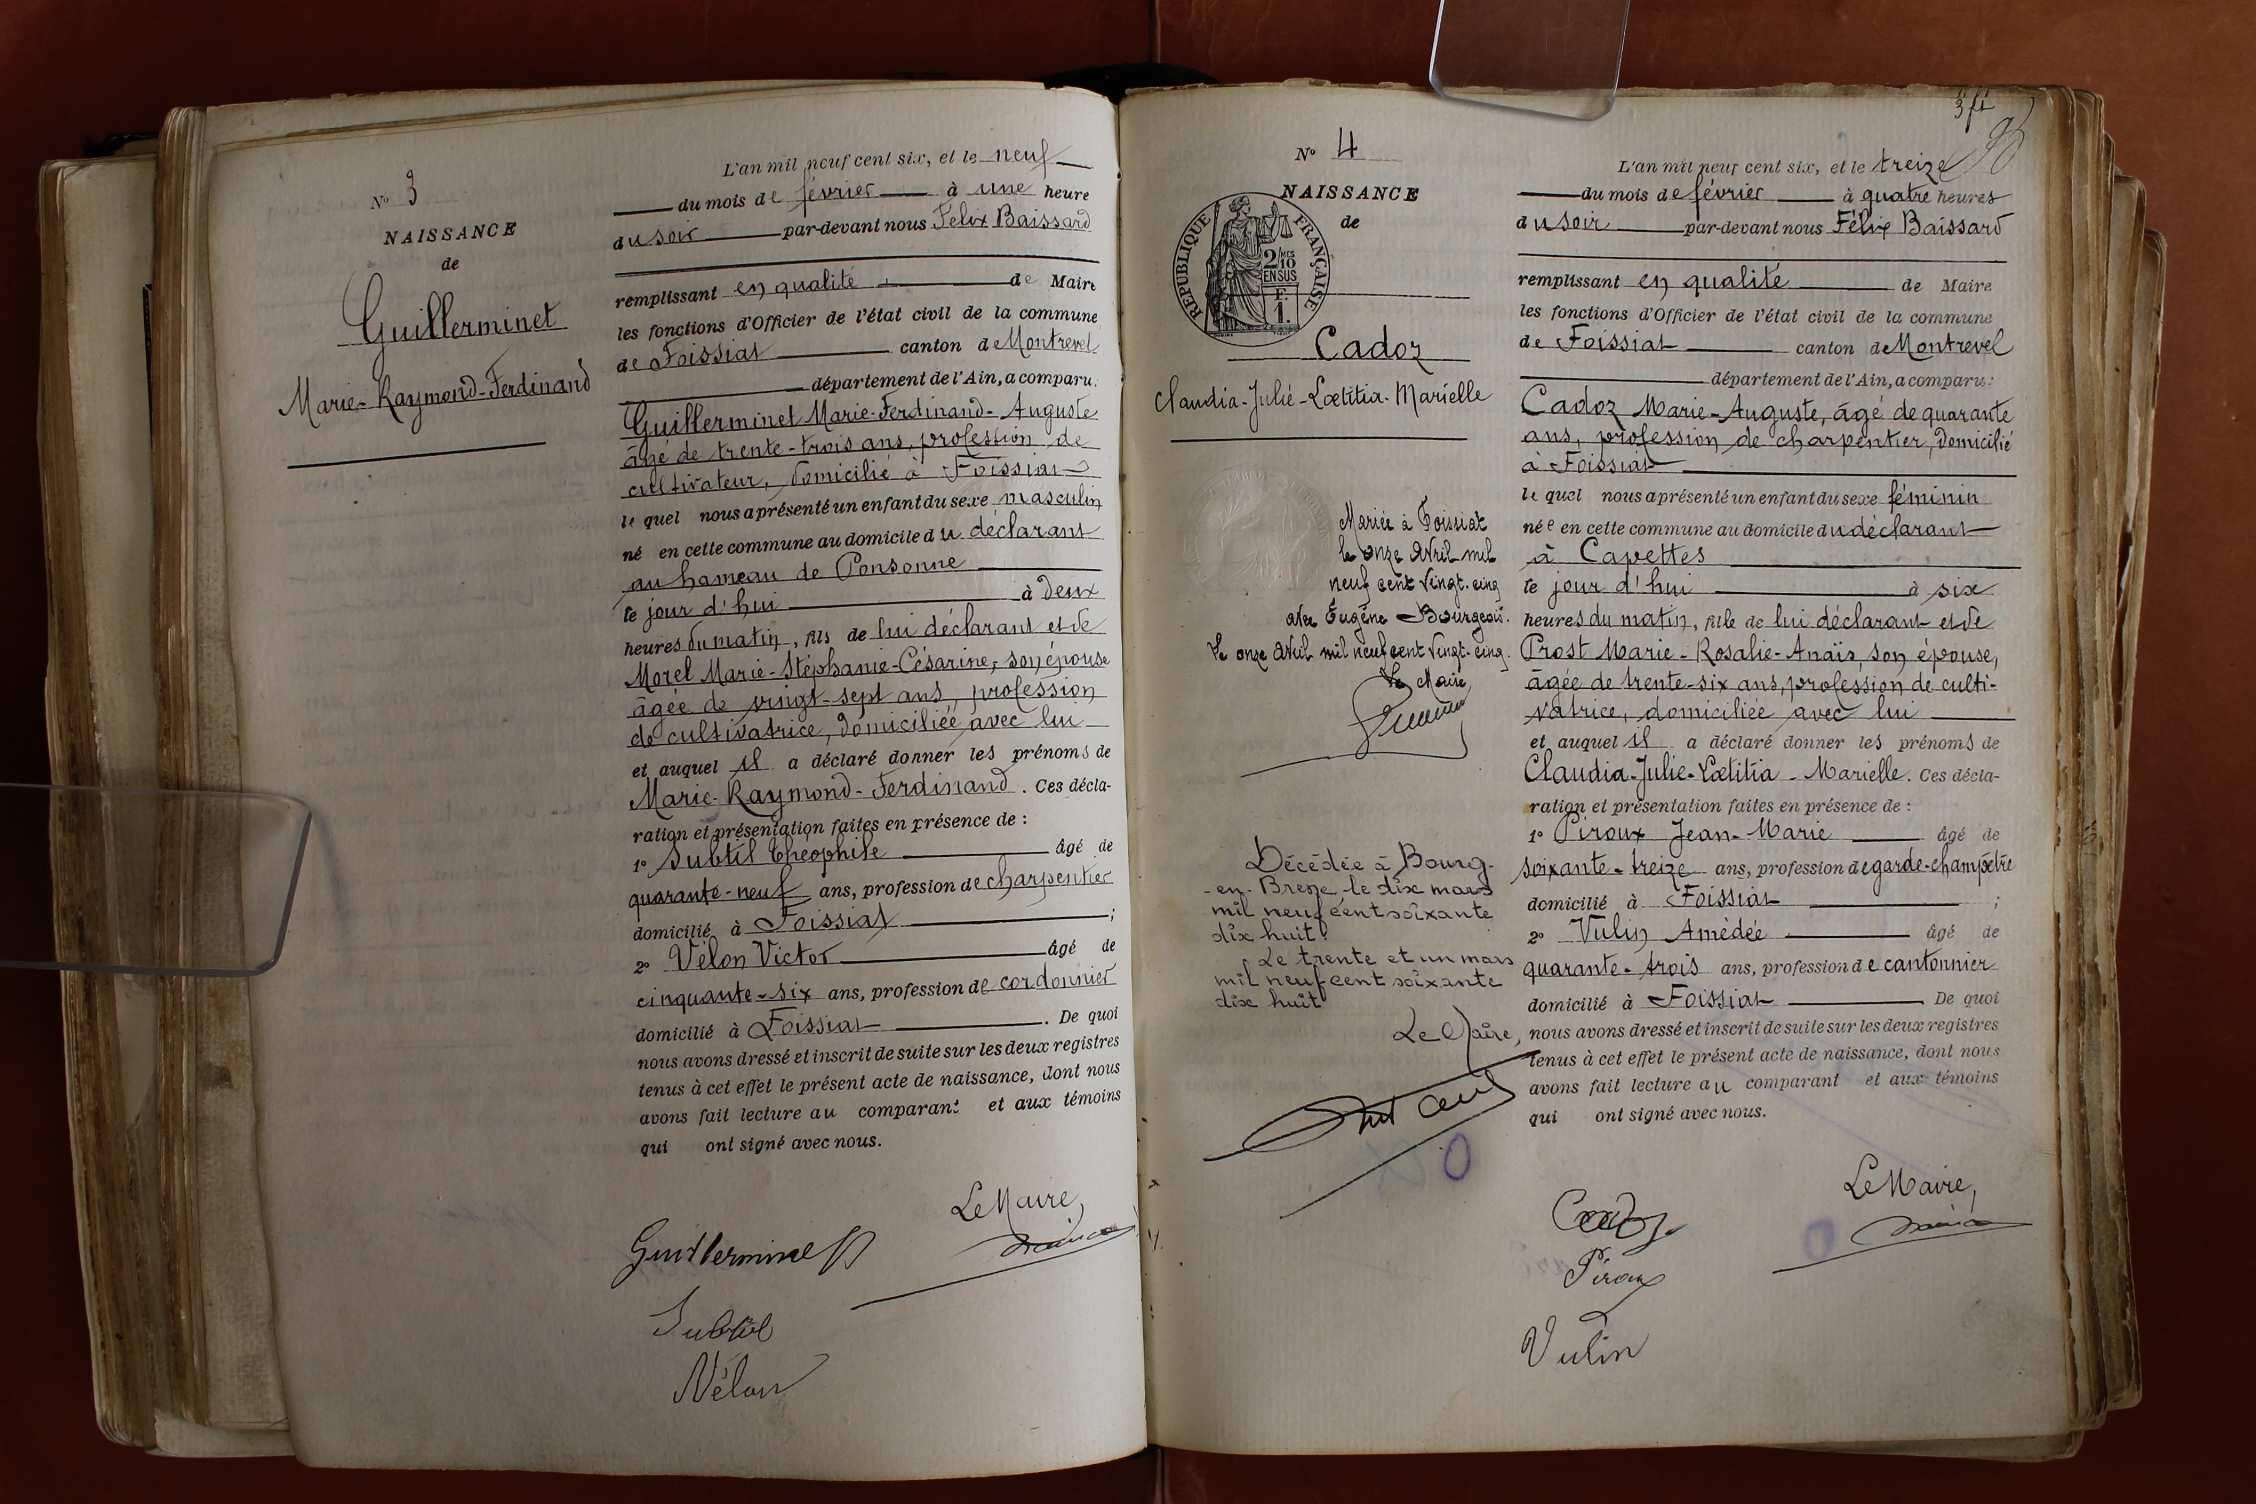 Nº 3
NAISSANCE
de
Guillerminet
Marie-Raymond-Ferdinand
L'an mil neuf cent six, et le neuf
du mois de février à une heure
du soir par-devant nous Félix Baissard
remplissant en qualité de Maire
les fonctions d'Officier de l'état civil de la commune
de Foissiat canton de Montrevel
département de l'Ain, a comparu:
Guillerminet Marie-Ferdinand-Auguste
âgé de trente-trois ans, profession de
cultivateur, domicilié à Foissiat
le quel nous a présenté un enfant du sexe masculin
né en cette commune au domicile du déclarant
au hameau de Ponsonne
le jour d'hui à deux
heures du matin, fils de lui déclarant et de
Morel Marie-Stéphanie-Césarine, son épouse
âgée de vingt-sept ans, profession
de cultivatrice, domiciliée avec lui
et auquel il a déclaré donner les prénoms de
Marie-Raymond-Ferdinand. Ces décla-
ration et présentation faites en présence de :
1º Subtil Théophile âgé de
quarante-neuf ans, profession de charpentier
domicilié à Foissiat ;
2º Vélon Victor âgé de
cinquante-six ans, profession de cordonnier
domicilié à Foissiat. De quoi
nous avons dressé et inscrit de suite sur les deux registres
tenus à cet effet le présent acte de naissance, dont nous
avons fait lecture au comparant et aux témoins
qui ont signé avec nous.
Le Maire,
Guillerminet
Subtil
Vélon
Nº 4
NAISSANCE
de
RÉPUBLIQUE FRANÇAISE
2/MES
10
EN SUS
F.
1.
Cadoz
Claudia-Julie-Lœtitia-Marielle
Mariée à Foissiat
le onze Avril mil
neuf cent vingt-cinq
avec Eugène Bourgeois.
Le onze Avril mil neuf cent vingt-cinq.
Le Maire
Décédée à Bourg-
-en-Bresse le dix mars
mil neuf cent soixante
dix huit.
Le trente et un mars
mil neuf cent soixante
dix huit
Le Maire,
L'an mil neuf cent six, et le treize
du mois de février à quatre heures
du soir par-devant nous Félix Baissard
remplissant en qualité de Maire
les fonctions d'Officier de l'état civil de la commune
de Foissiat canton de Montrevel
département de l'Ain, a comparu:
Cadoz Marie-Auguste, âgé de quarante
ans, profession de charpentier, domicilié
à Foissiat
le quel nous a présenté un enfant du sexe féminin
née en cette commune au domicile du déclarant
à Cavettes
le jour d'hui à six
heures du matin, fille de lui déclarant et de
Prost Marie-Rosalie-Anaïs, son épouse,
âgée de trente-six ans, profession de culti-
vatrice, domiciliée avec lui
et auquel il a déclaré donner les prénoms de
Claudia-Julie-Lœtitia-Marielle. Ces décla-
ration et présentation faites en présence de :
1º Piroux Jean-Marie âgé de
soixante-treize ans, profession de garde-champêtre
domicilié à Foissiat ;
2º Vulin Amédée âgé de
quarante-trois ans, profession de cantonnier
domicilié à Foissiat De quoi
nous avons dressé et inscrit de suite sur les deux registres
tenus à cet effet le présent acte de naissance, dont nous
avons fait lecture au comparant et aux témoins
qui ont signé avec nous.
Le Maire,
Cadoz
Piroux
Vulin